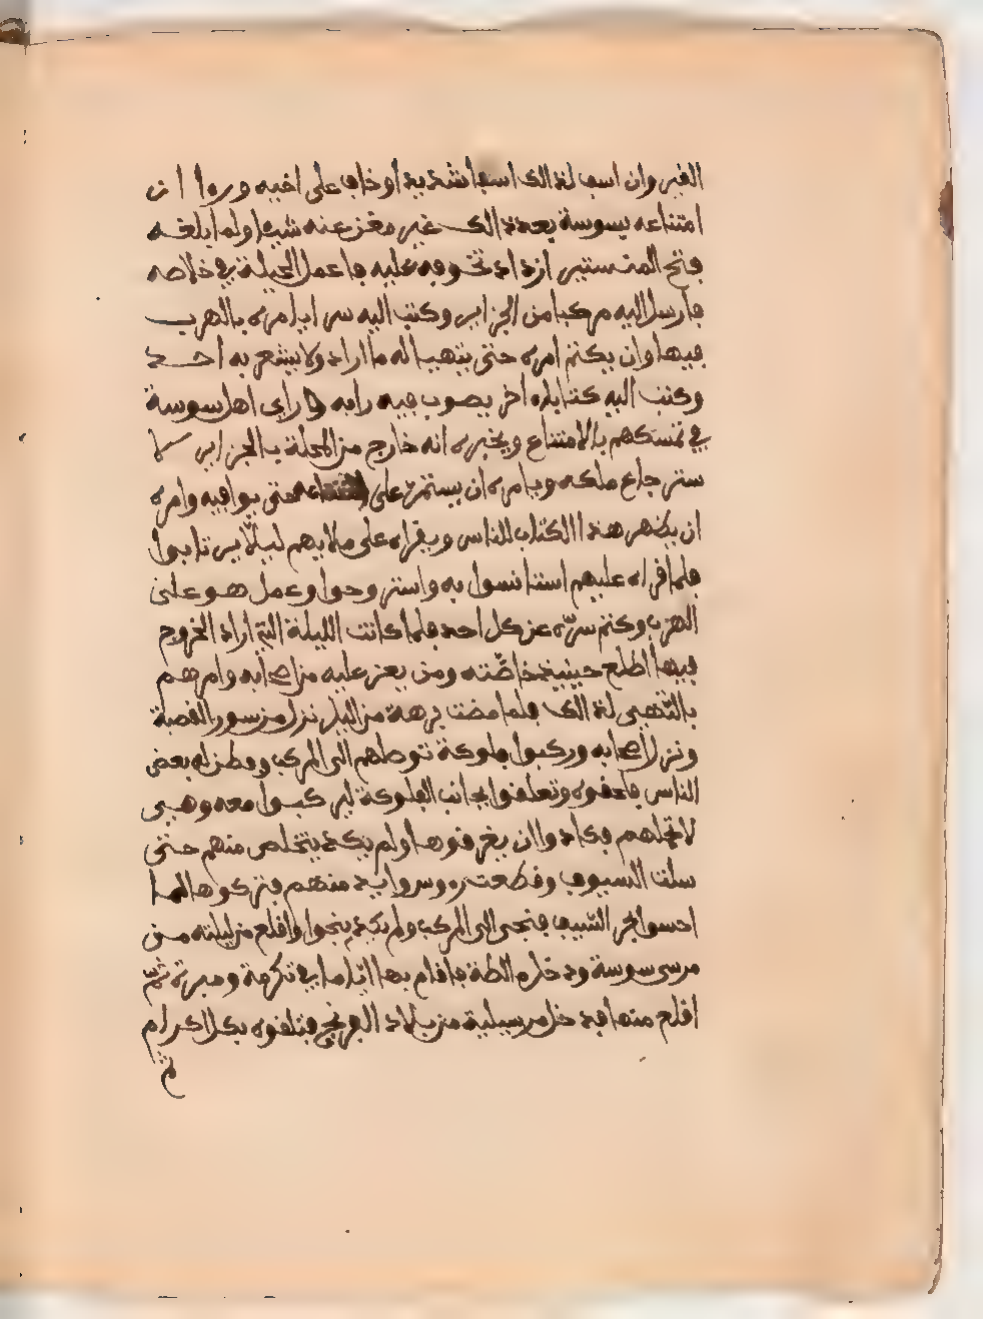 القبر وان اسف لذالك اسفا شديدا وخاف على اخيه وراا ان
امتناعه بسوسة بعد ذالك غير مغن عنه شيءا ولما بلغه
فتح المنستير ازداد تخوفه عليه فاعمل الحيلة في خلاصه
فارسل اليه مركبا من الجزاير وكتب اليه سرا يامره بالهرب
فيها وان يكتم امره حتى يتهيا له ما اراد ولا يشعر به احد
وكتب اليه كتابا اخر يصوب فيه رايه وراي اهل سوسة
في تمسكهم بالامتناع ويخبره انه خارج من المحلة بالجزاير لا
سترجاع ملكه ويامره ان يستمر على امتناعه حتى يوافيه وامره
ان يظهر هذا الكتاب للناس ويقراه على ملايهم ليلا يرتابوا
فلما قراه عليهم استانسوا به واستروحوا وعمل هو على
الهرب وكتم سرّه عن كل احد فلما كانت الليلة التي اراد الخروج
فيها اطلع حينيذ خاصّته ومن يعز عليه من اصحابه وامرهم
بالتّهيي لذالك فلما مضت برهة من اليل نزل من سور القصبة
ونزل اصحابه وركبوا فلوكة توصلهم الى المركب وفطن له بعض
الناس فلحقوه وتعلقوا بجانب الفلوكة ليركبوا معه وهي
لا تحملهم فكادوا ان يغرقوها ولم يكد يتخلص منهم حتى
سلت السيوف وقطعت روس وايد منهم فتركوها لما
احسوا بحر السّيف فنجى الى المركب ولم يكد ينجوا واقلع من ليلته من
مرسى سوسة ودخل مالطة فاقام بها ايّاما في تكرمة ومبرة ثمّ
اقلع منها فدخل مرسيلية من بلاد الفرنج فتلقوه بكل اكرام
ثم